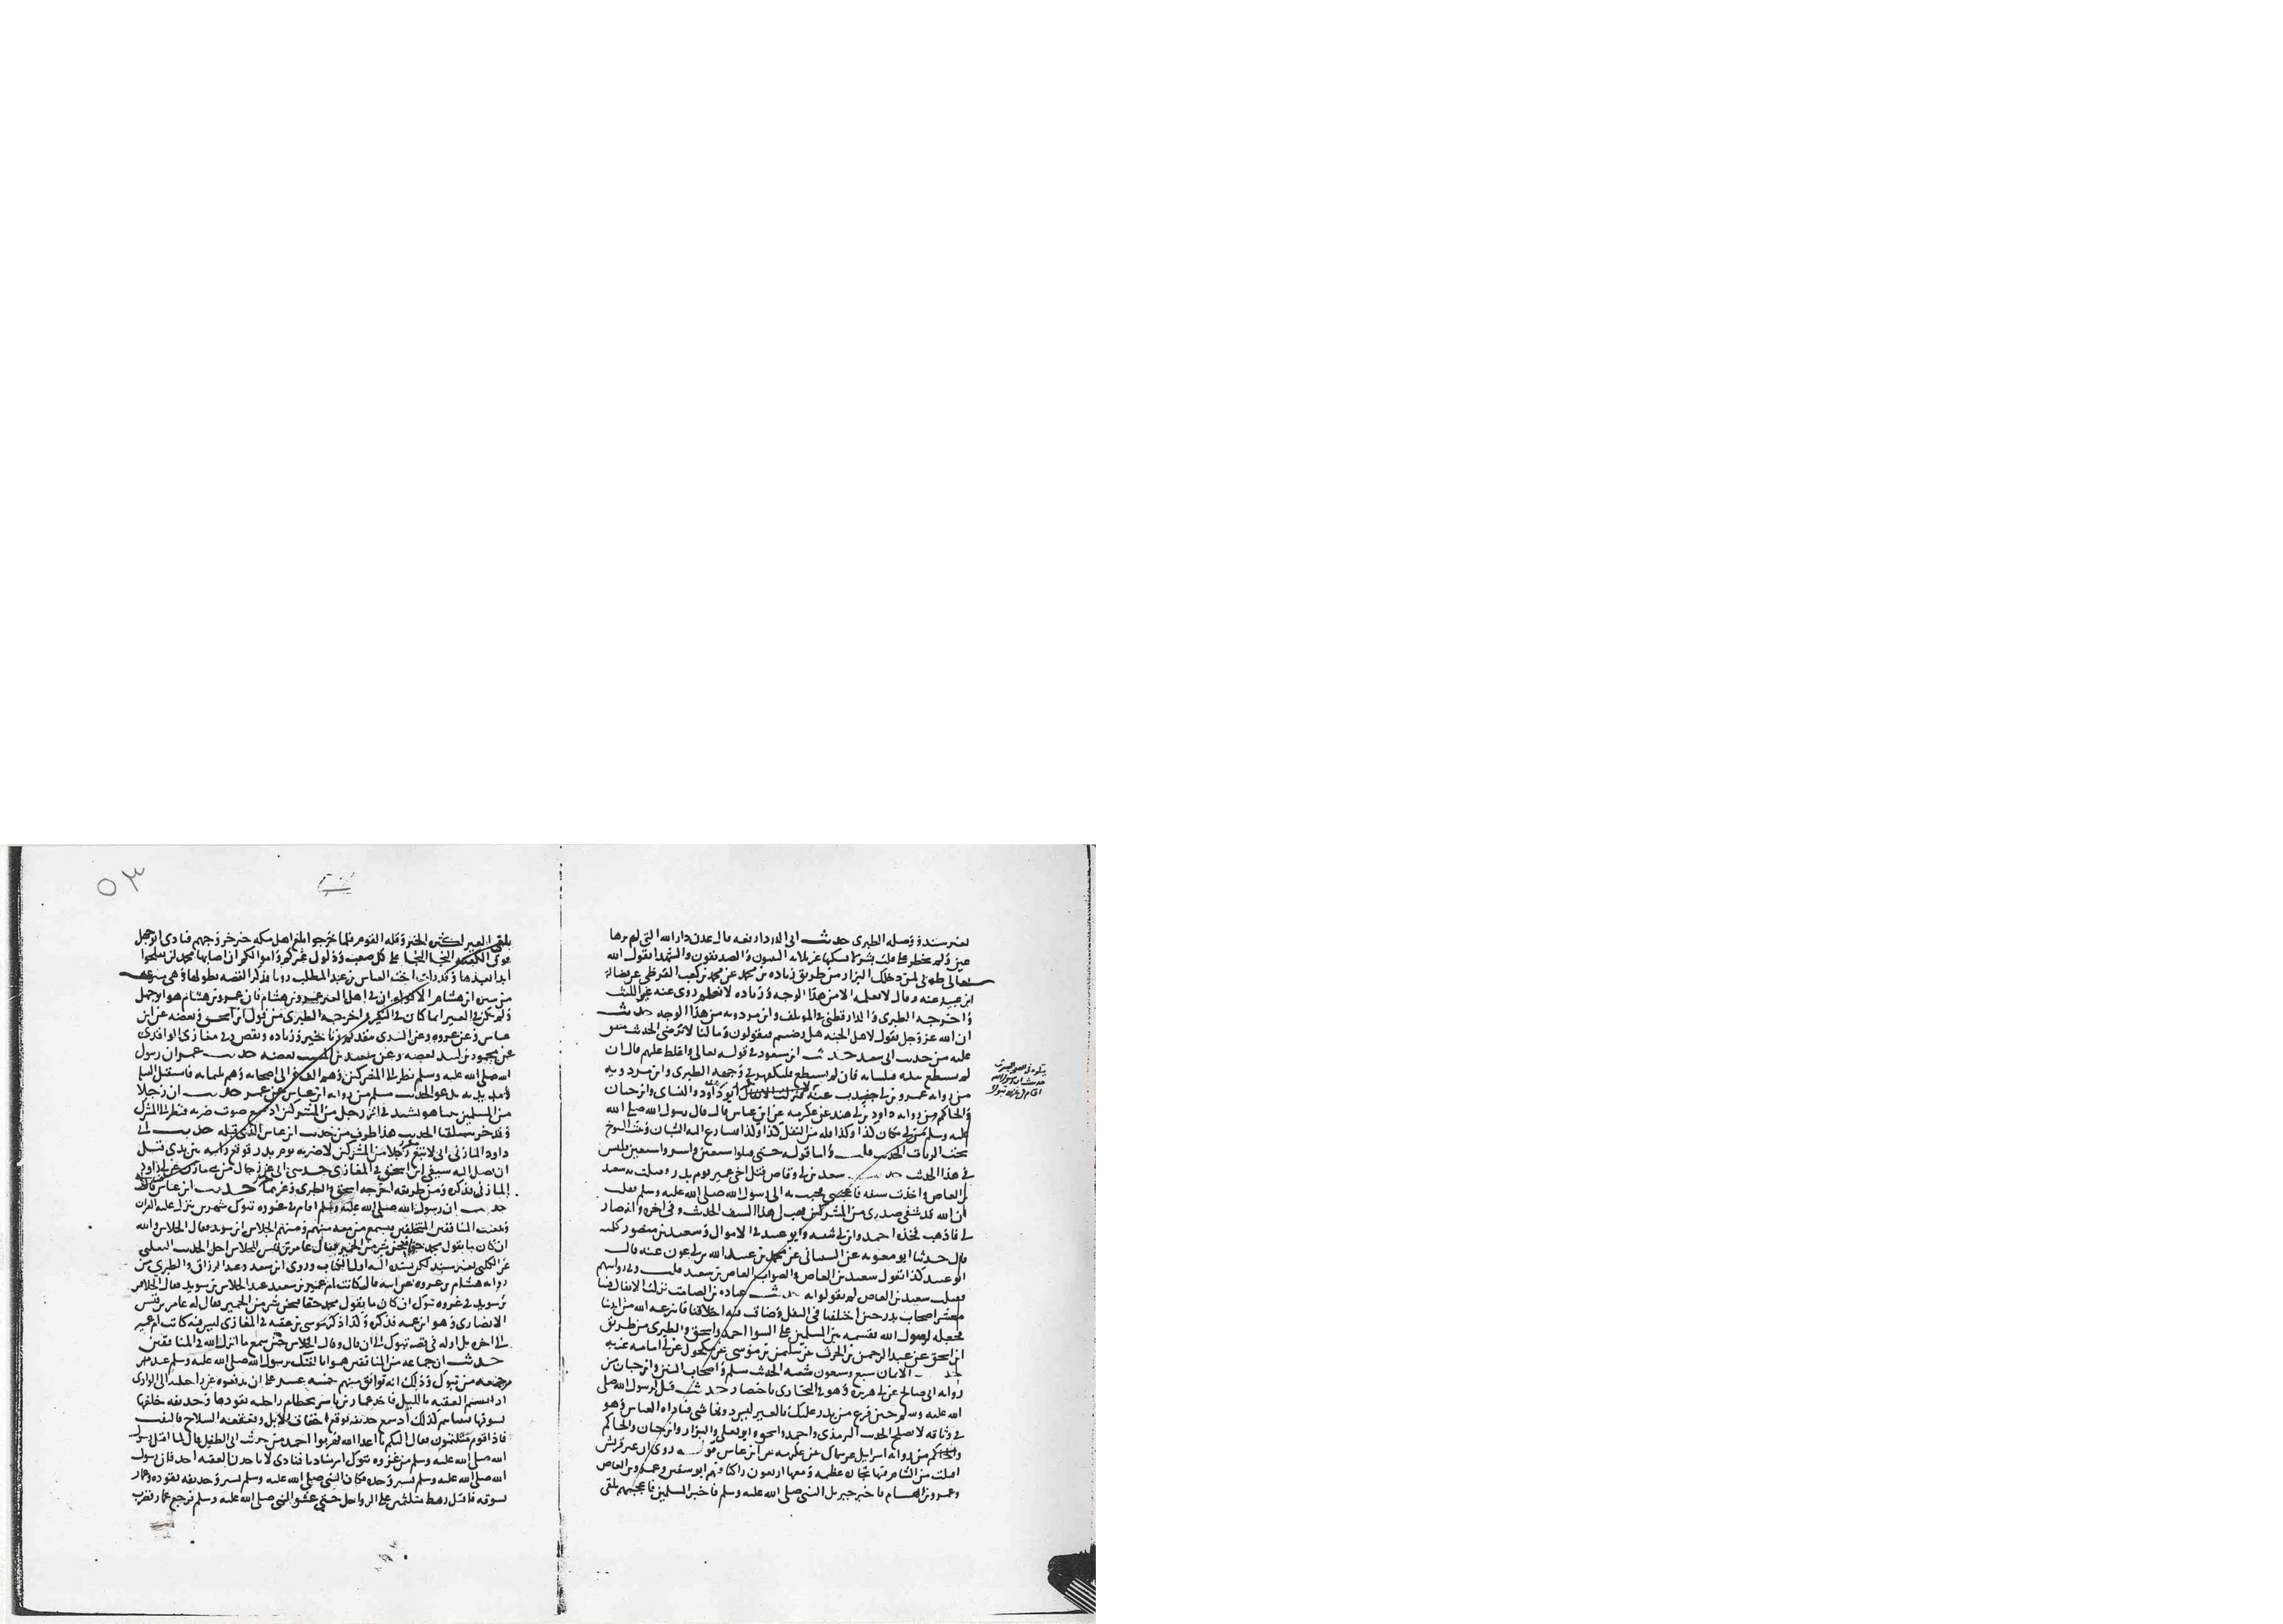 بغير سند ووصله الطبرى حديث ابى الدرداء رفعه قال عدن دار الله التى لم يرها
عين ولم يخطر على قلب بشر لا يسكنها غير ثلاثه النبيون والصديقون والشهدا يقول الله
تعالى طوبى لمن دخلك البزار من طريق زياده بن محمد عن محمد بن كعب القرظى عن فضاله
ابن عبيد عنه وقال لا نعلمه الا من هذا الوجه وزياده لا نعلم روى عنه غير الليث
واخرجه الطبرى والدارقطنى فى المؤتلف وابن مردويه من هذا الوجه حديث
ان الله عز وجل يقول لاهل الجنه هل رضيتم فيقولون وما لنا لا نرضى الحديث متفق
عليه من حديث ابى سعيد حديث ابن مسعود فى قوله تعالى واغلظ عليهم قال ان
لم يستطع بيده فبلسانه فان لم يستطع فليكفهر فى وجهه الطبرى وابن مردويه
من روايه عمرو بن ابى جندب عنه ابو داود والنساى وابن حبان
والحاكم من روايه داود بن ابى هند عن عكرمه عن ابن عباس قال قال رسول الله صلى الله
عليه وسلم من اتى مكان كذا وكذا فله من النفل كذا وكذا فتسارع اليه الشبان وثبت الشيوخ
تحت الرايات الحديث قلت واما قوله حتى قتلوا سبعين واسروا سبعين فليس
فى هذا الحديث حديث سعد بن ابى وقاص قتل اخى عمير يوم بدر وقتلت به سعيد
بن العاص واخذت سيفه فاعجبنى فجيت به الى رسول الله صلى الله عليه وسلم فقلت
ان الله قد شفى صدرى من المشركين فهب لى هذا السيف الحديث وفى اخره
لى فاذهب فخذه احمد وابن ابى شيبه وابو عبيد فى الاموال وسعيد بن منصور كلهم
قال حدثنا ابو معويه عن الشيبانى عن محمد بن عبيد الله بن ابى عون عنه قال
ابو عبيد كذا نقول سعيد بن العاص والصواب العاص بن سعيد قلت وفى روايتهم
فقتلت سعيد بن العاص لم يقولوا به حديث عباده بن الصامت نزلت الانفال فينا
معشر اصحاب بدر حين اختلفنا فى النفل وساءت فيه اخلاقنا فانزعه الله من ايدينا
فجعله لرسول الله فقسمه بين المسلمين على السوا احمد واسحق والطبرى من طريق
ابن اسحق عن عبد الرحمن بن الحرث عن سليمن بن موسى عن مكحول عن ابى امامه عنه به
حديث الايمان بضع وسبعون شعبه الحديث مسلم واصحاب السنن وابن حبان من
روايه ابى صالح عن ابى هريره وهو فى البخارى باختصار حديث قيل لرسول الله صلى
الله عليه وسلم حين فرغ من بدر عليك بالعير ليس دونها شى فناداه العباس وهو
فى وثاقه لا يصلح الحديث الترمذى واحمد واسحق وابو يعلى والبزار وابن حبان والحاكم
من روايه اسرايل عن سماك عن عكرمه عن ابن عباس قوله روى ان عير قريش
اقبلت من الشام فيها تجاره عظيمه ومعها اربعون راكبا منهم ابو سفين وعمرو بن العاص
وعمرو بن هشام فاخبر جبريل النبى صلى الله عليه وسلم فاخبر المسلمين فاعجبهم تلقى
يتلوه
حديث ان رسول الله
اقام فى غزوه تبوك
٥٣
تلقى العير لكثره الخير وقله القوم فلما خرجوا بلغ اهل مكه خبر خروجهم فنادى ابو جهل
فوق الكعبه النجا النجا على كل صعب وذلول عيركم واموالكم ان اصابها محمد لن تفلحوا
ابدا بعدها وقد رات اخت العباس بن عبد المطلب رويا فذكر القصه بطولها وهى منتزعه
من سيره ابن هشام الا قوله ان فى اهل العير عمرو بن هشام فان عمرو بن هشام هو ابو جهل
ولم يكن فى العير انما كان فى النفير واخرجه الطبرى من قول ابن اسحق وبعضه عن ابن
عباس وعن عروه وعن السدى تقديم وتاخير وزياده ونقص وفى مغازى الواقدى
عن محمود بن لبيد بعضه وعن سعيد بن المسيب بعضه حديث عمر ان رسول
الله صلى الله عليه وسلم نظر الى المشركين وهم الف والى اصحابه وهم ثلثمايه فاستقبل القبله
ومد يديه يدعو الحديث مسلم من روايه ابن عباس عن عمر حديث ان رجلا
من المسلمين بينما هو يشتد فى اثر رجل من المشركين اذ سمع صوت ضربه فنظر الى المشرك
وقد خر مستلقيا الحديث هذا طرف من حديث ابن عباس الذى قبله حديث ابى
داود المازنى انى لاتبع رجلا من المشركين لاضربه يوم بدر فوقع راسه بين يدى قبل
ان يصل اليه سيفى ابن اسحق فى المغازى حدثنى ابى عن رجال من بنى مازن عن ابى داود
المازنى فذكره ومن طريقه اخرجه اسحق والطبرى وغيرهما حديث ابن عباس
حديث ان رسول الله صلى الله عليه وسلم اقام فى غزوه تبوك شهرين ينزل عليه القران
ويعيب المنافقين المتخلفين فيسمع من معه منهم ومنهم الجلاس بن سويد فقال الجلاس والله
ان كان ما يقول محمد حقا لنحن شر من الحمير فقال عامر بن قيس للجلاس اجل الحديث الثعلبى
عن الكلبى بغير سند لكن سنده اليه اول الكتاب وروى ابن سعد وعبد الرزاق والطبرى من
روايه هشام بن عروه عن ابيه قال كانت ام عمير بن سعيد عند الجلاس بن سويد فقال الجلاس
بن سويد فى غزوه تبوك ان كان ما يقول محمد حقا لنحن شر من الحمير فقال له عامر بن قيس
الانصارى وهو ابن عمه فذكره وكذا ذكره موسى بن عقبه فى المغازى ليس فيه كانت ام عمير
الى اخره بل اوله فى قصه تبوك الى ان قال وقال الجلاس حين سمع ما انزل الله فى المنافقين
حديث ان جماعه من المنافقين هموا بالفتك برسول الله صلى الله عليه وسلم عند
مرجعه من تبوك وذلك انه توافق منهم خمسه عشر على ان يدفعوه عن راحلته الى الوادى
اذا تسنم العقبه بالليل فاخذ عمار بن ياسر بخطام راحلته يقودها وحذيفه خلفها
يسوقها فبينما هم كذلك اذ سمع حذيفه بوقع اخفاف الابل وبقعقعه السلاح فالتفت
فاذا قوم متلثمون فقال اليكم يا اعدا الله فهربوا احمد من حديث ابى الطفيل قال لما اقبل رسول
الله صلى الله عليه وسلم من غزوه تبوك امر مناديا فنادى لا ياخذن العقبه احد فان رسول
الله صلى الله عليه وسلم يسير وحده فكان النبى صلى الله عليه وسلم يسير وحذيفه يقوده وعمار
يسوقه فاقبل رهط متلثمين على الرواحل حتى غشوا النبى صلى الله عليه وسلم فرجع عمار فضرب